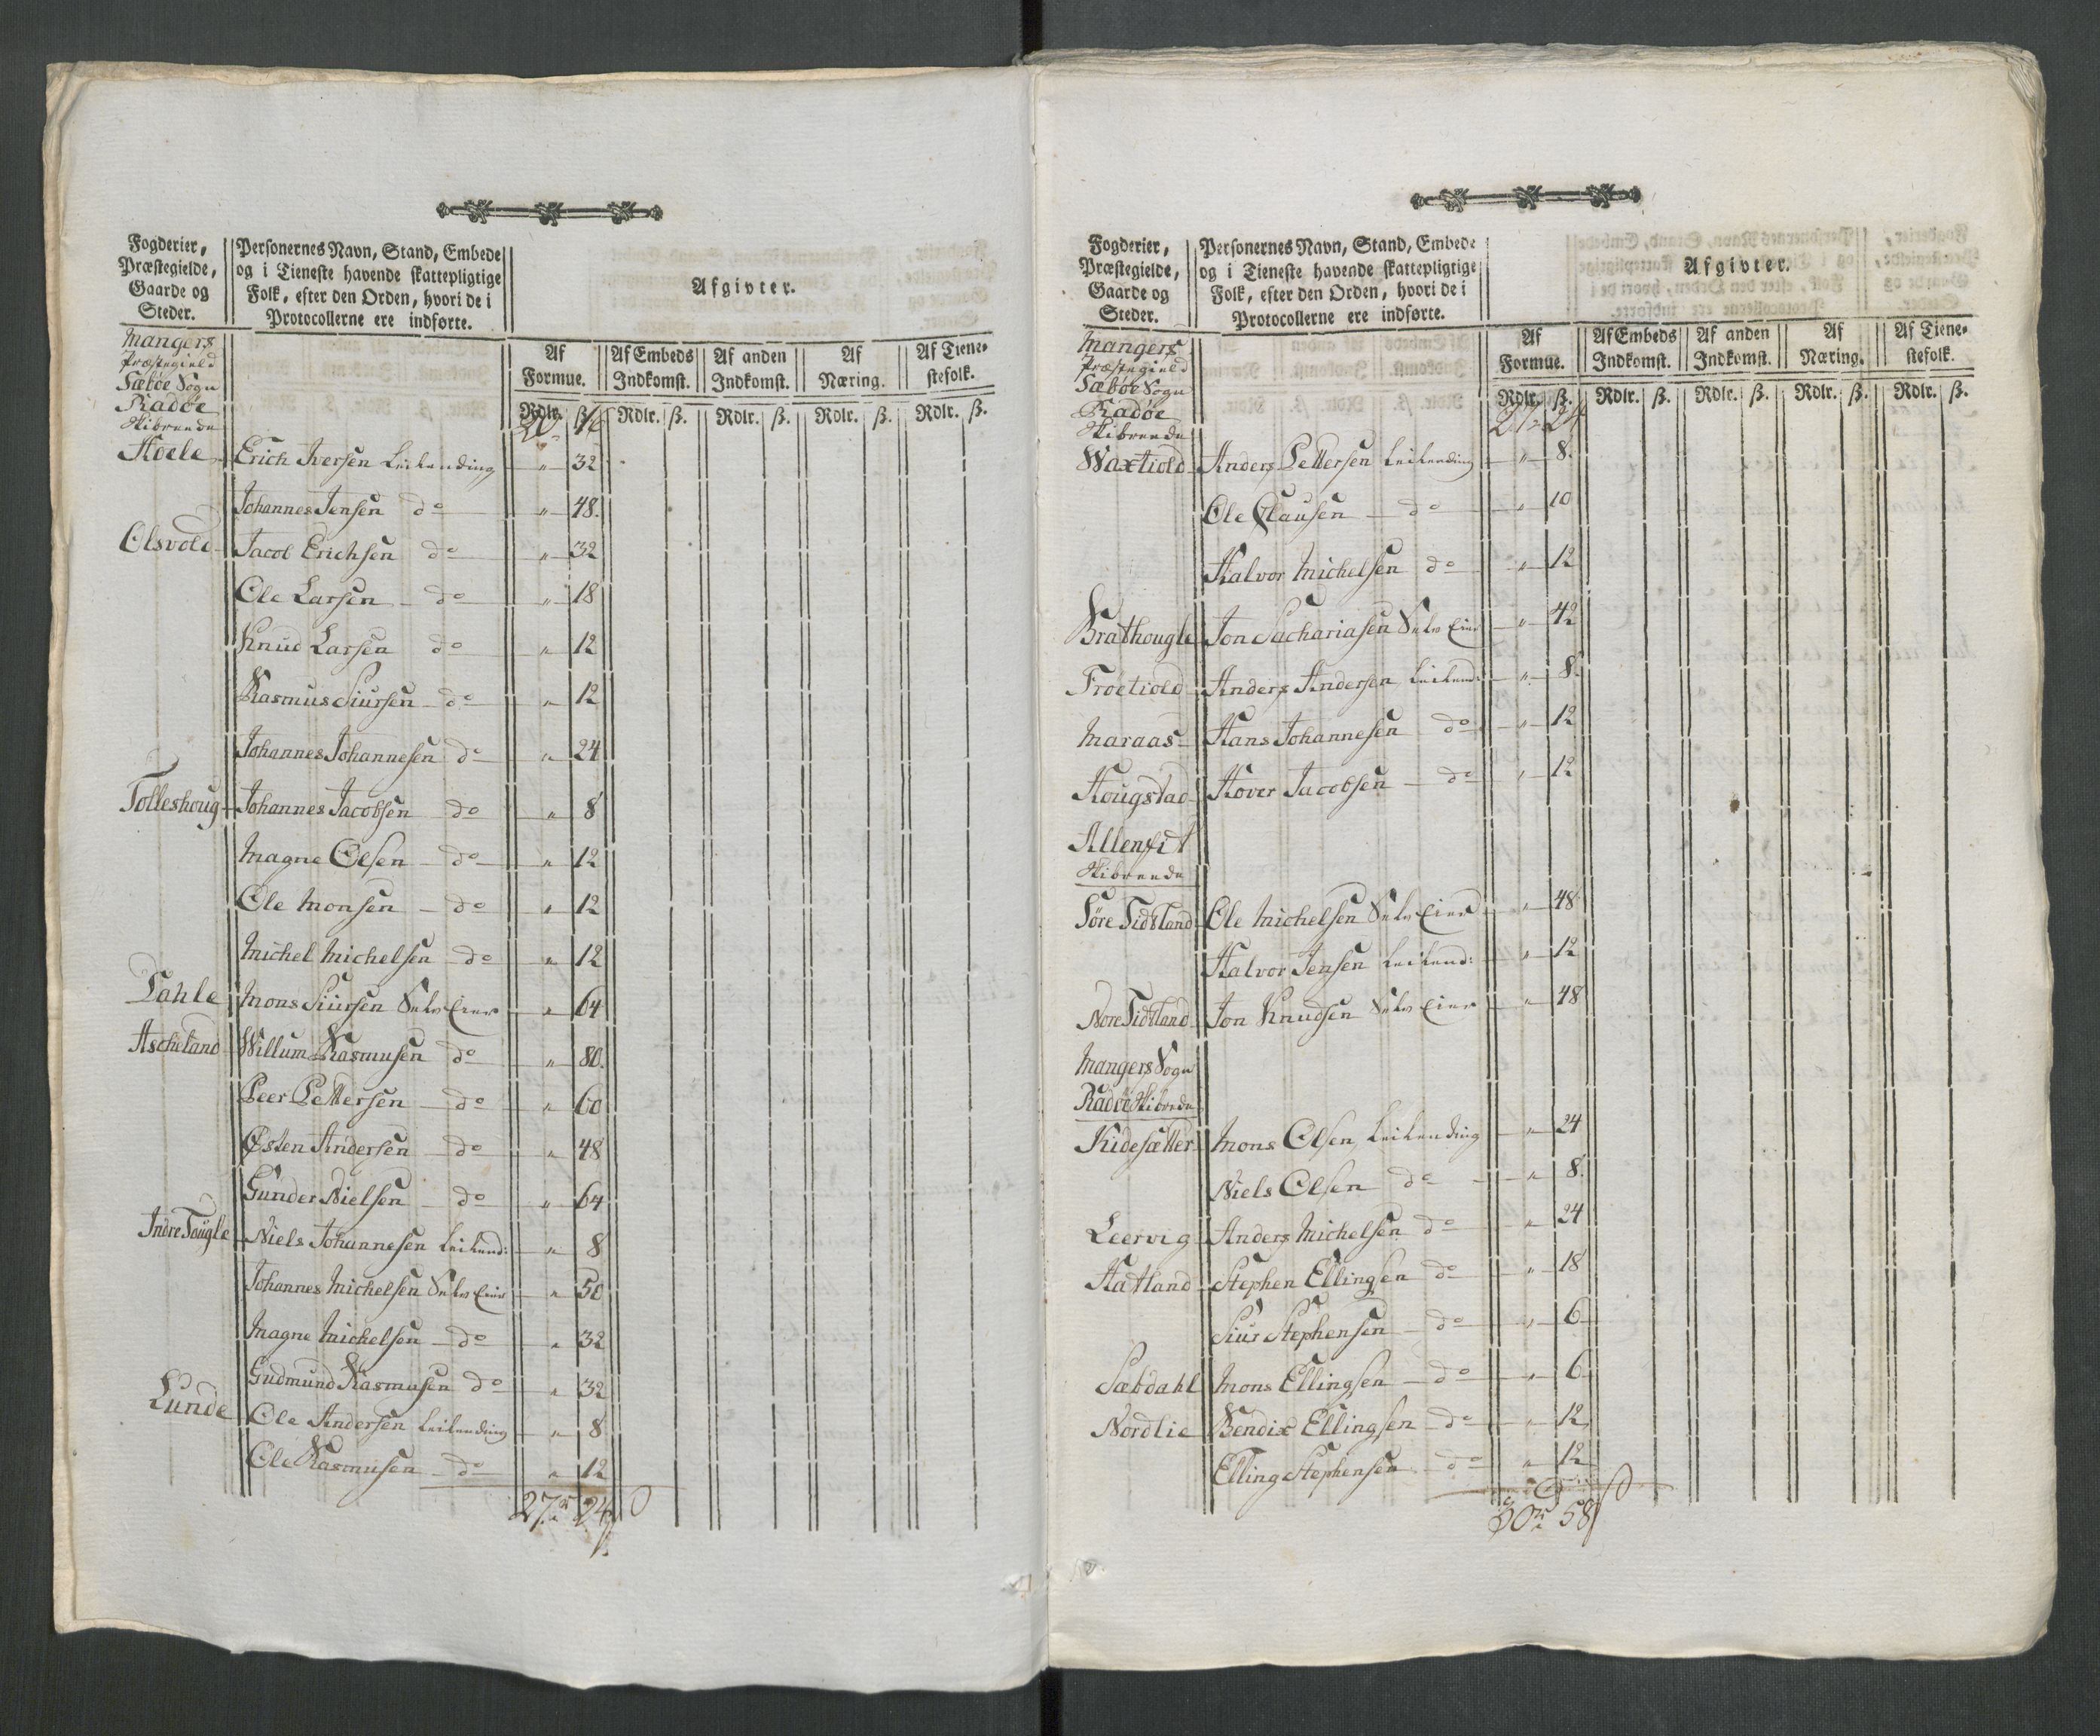 Fogderier, Præstegielde, Gaarde og Steder.
Personernes Navn, Stand, Embede og i Tieneste havende skattepligtige Folk, efter den Orden, hvori de i Protocollerne ere indførte.
Afgivter.
Af Formue. Af Embeds Indkomst. Af anden Indkomst. Af Næring. Af Tienestefolk.
Rdlr. ß. Rdlr. ß. Rdlr. ß. Rdlr. ß. Rdlr. ß.
Mangers
Præstegield
Sæbøe Sogn
Radøe
Skibreede
Hoele Erich Iversen Leilending „ 32
Johannes Jensen do „ 48.
Olsvold Jacob Erichsen do „ 32
Ole Larsen do „ 18
Knud Larsen do „ 12
Rasmus Siursen do „ 12
Johannes Johannesen do „ 24
Tolleshoug Johannes Jacobsen do „ 8
Magne Olsen do „ 12
Ole Monsen do „ 12
Michel Michelsen do „ 12
Dahle Mons Siursen Selv Eier „ 64
Ascheland Willum Rasmusen do „ 80.
Peer Pettersen do „ 60
Østen Andersen do „ 48
Gunder Nielsen do „ 64
Indre Tougle Niels Johannesen Leilend: „ 8
Johannes Michelsen Selv Eier „ 50
Magne Michelsen do „ 32
Gudmund Rasmusen do „ 32
Lunde Ole Andersen Leilending „ 8
Ole Rasmusen do „ 12
27 24
Fogderier, Præstegielde, Gaarde og Steder.
Personernes Navn, Stand, Embede og i Tieneste havende skattepligtige Folk, efter den Orden, hvori de i Protocollerne ere indførte.
Afgivter.
Af Formue. Af Embeds Indkomst. Af anden Indkomst. Af Næring. Af Tienestefolk.
Rdlr. ß. Rdlr. ß. Rdlr. ß. Rdlr. ß. Rdlr. ß.
27 24
Mangers
Præstegield
Sæbøe Sogn
Radøe
Skibreede
Waxtiold Anders Pettersen Leilending „ 8.
Ole Clausen do „ 10
Halvor Michelsen do „ 12
Brathougle Jon Sachariasen Selv Eier „ 42
Froetiold Anders Andersen Leilend: „ 8.
Maraas Hans Johannesen do „ 12
Hougstad Hover Jacobsen do „ 12
Allenfit
Skibreede
Søre Tidsland Ole Michelsen Selv Eier „ 48
Halvor Jensen Leilend: „ 12
Nore Tidsland Jon Knudsen Selv Eier „ 48
Mangers Sogn
Radøe Skibrede
Kidesætter Mons Olsen Leilending „ 24
Niels Olsen do „ 8.
Leervig Anders Michelsen do „ 24
Hatland Stephen Ellingsen do „ 18
Siur Stephensen do „ 6
Sæbdahl Mons Ellingsen do „ 6
Nordlie Bendix Ellingsen do „ 12
Elling Stephensen do „ 12
30 58